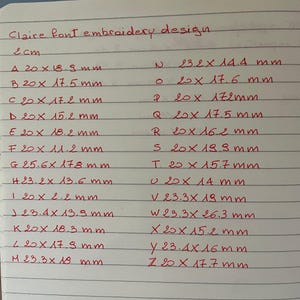 Claire font embroidery design
2cm
A 20 X 18.9 mm
B 20 X 17.5 mm
C 20 X 17.2 mm
D 20 X 15.2 mm
E 20 X 18.2 mm
F 20 X 11.2 mm
G 25.6 X 17.8 mm
H 23.2 X 13.6 mm
I 20 X 2.2 mm
J 23.4 X 13.9 mm
K 20 X 18.3 mm
L 20 X 17.9 mm
M 23.3 X 18 mm
N 23.2 X 14.4 mm
O 20 X 17.6 mm
P 20 X 172mm
Q 20 X 17.5 mm
R 20 X 16.2 mm
S 20 X 18.9 mm
T 20 X 15.7 mm
U 20 X 14 mm
V 23.3 X 18 mm
W 23.3 X 26.3 mm
X 20 X 15.2 mm
Y 23.4 X 16 mm
Z 20 X 17.7 mm